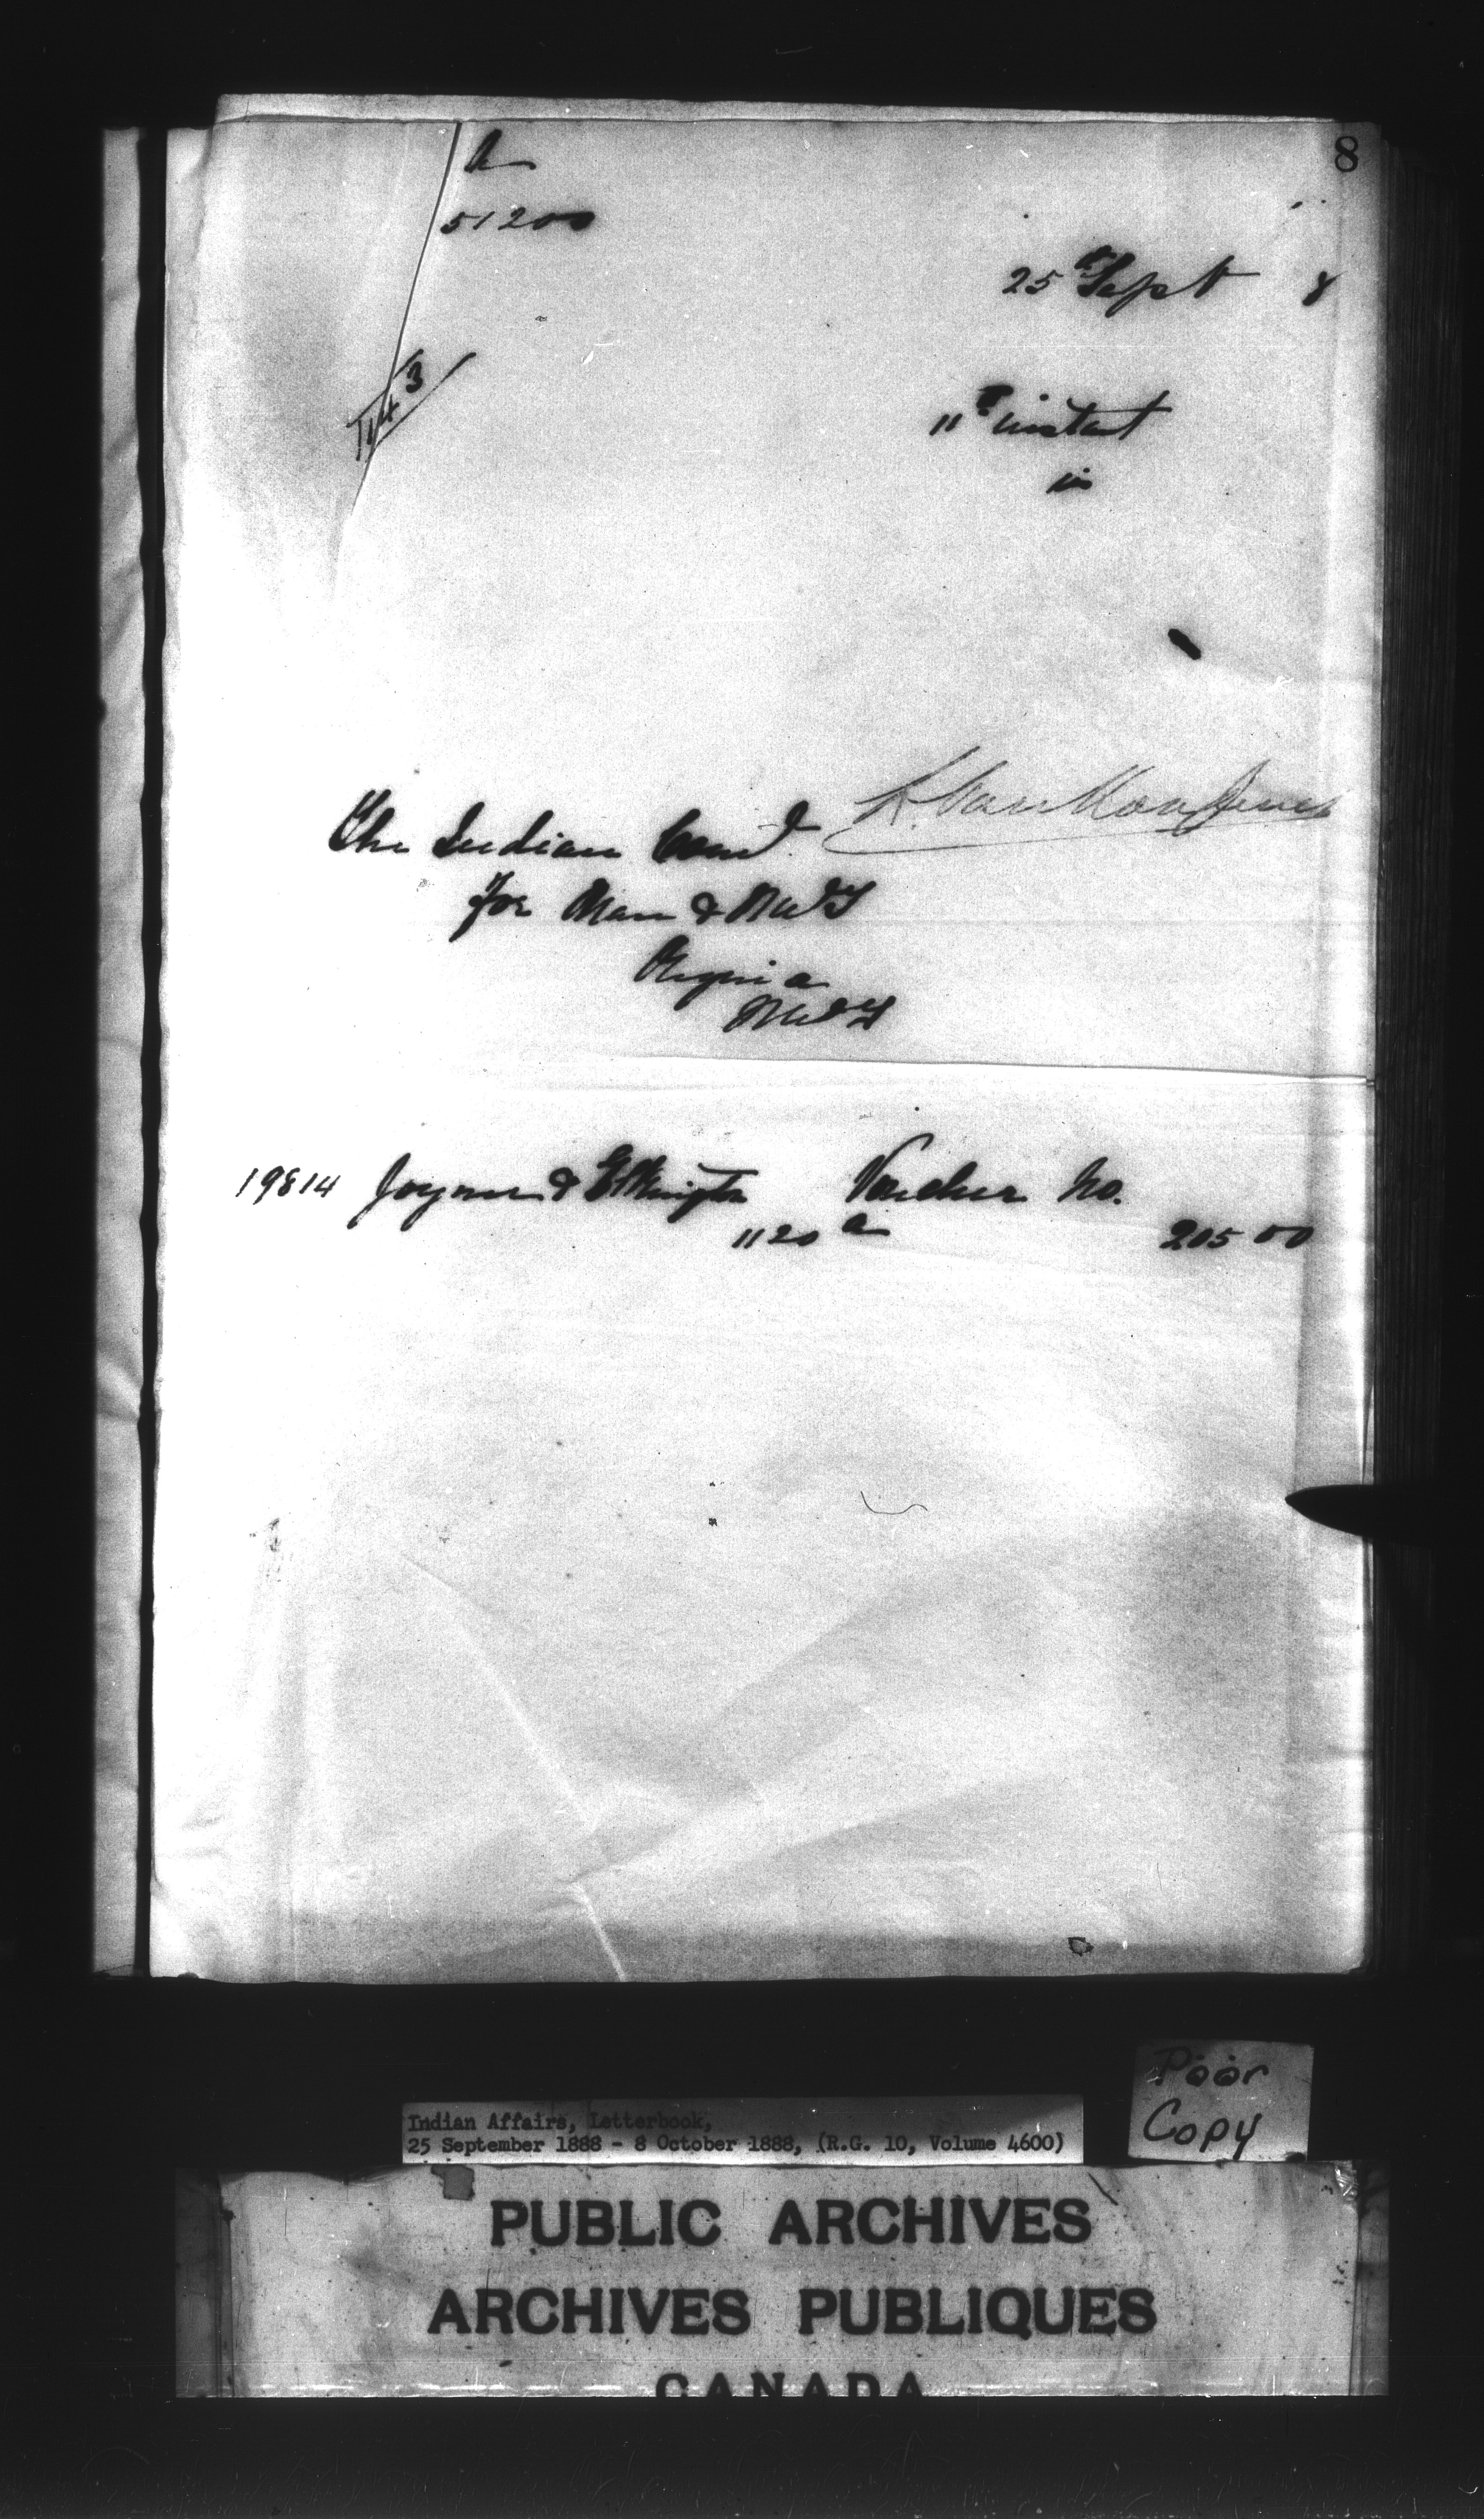 8
A
51200
25th Sept 8
1143
11th instant
in
The Indian Comr
for Man & NWT
Regina
NWT
19814 Joyner & Elkington Voucher No.
1120 a 205 00
Poor
Copy
Indian Affairs, Letterbook,
25 September 1888 - 8 October 1888, (R.G. 10, Volume 4600)
PUBLIC ARCHIVES
ARCHIVES PUBLIQUES
CANADA